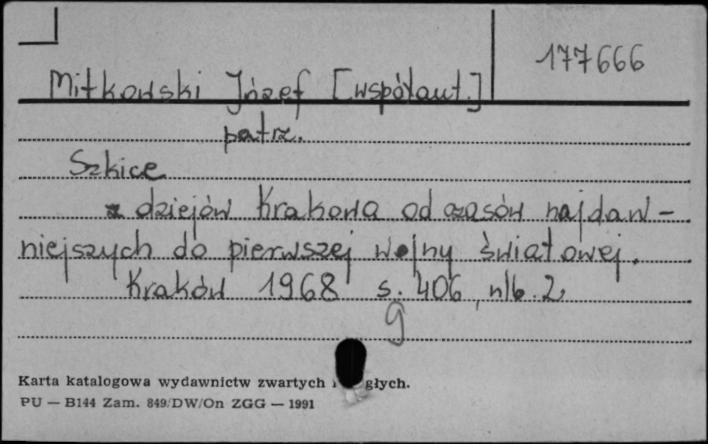 177666
Mitkowski Józef [współaut.]
patrz.
Szkice
z dziejów Krakowa od czasów najdaw-
niejszych do pierwszej wojny światowej.
Kraków 1968 s. 406, nlb. 2
g
Karta katalogowa wydawnictw zwartych i głych.
PU — B144 Zam. 849/DW/On ZGG — 1991